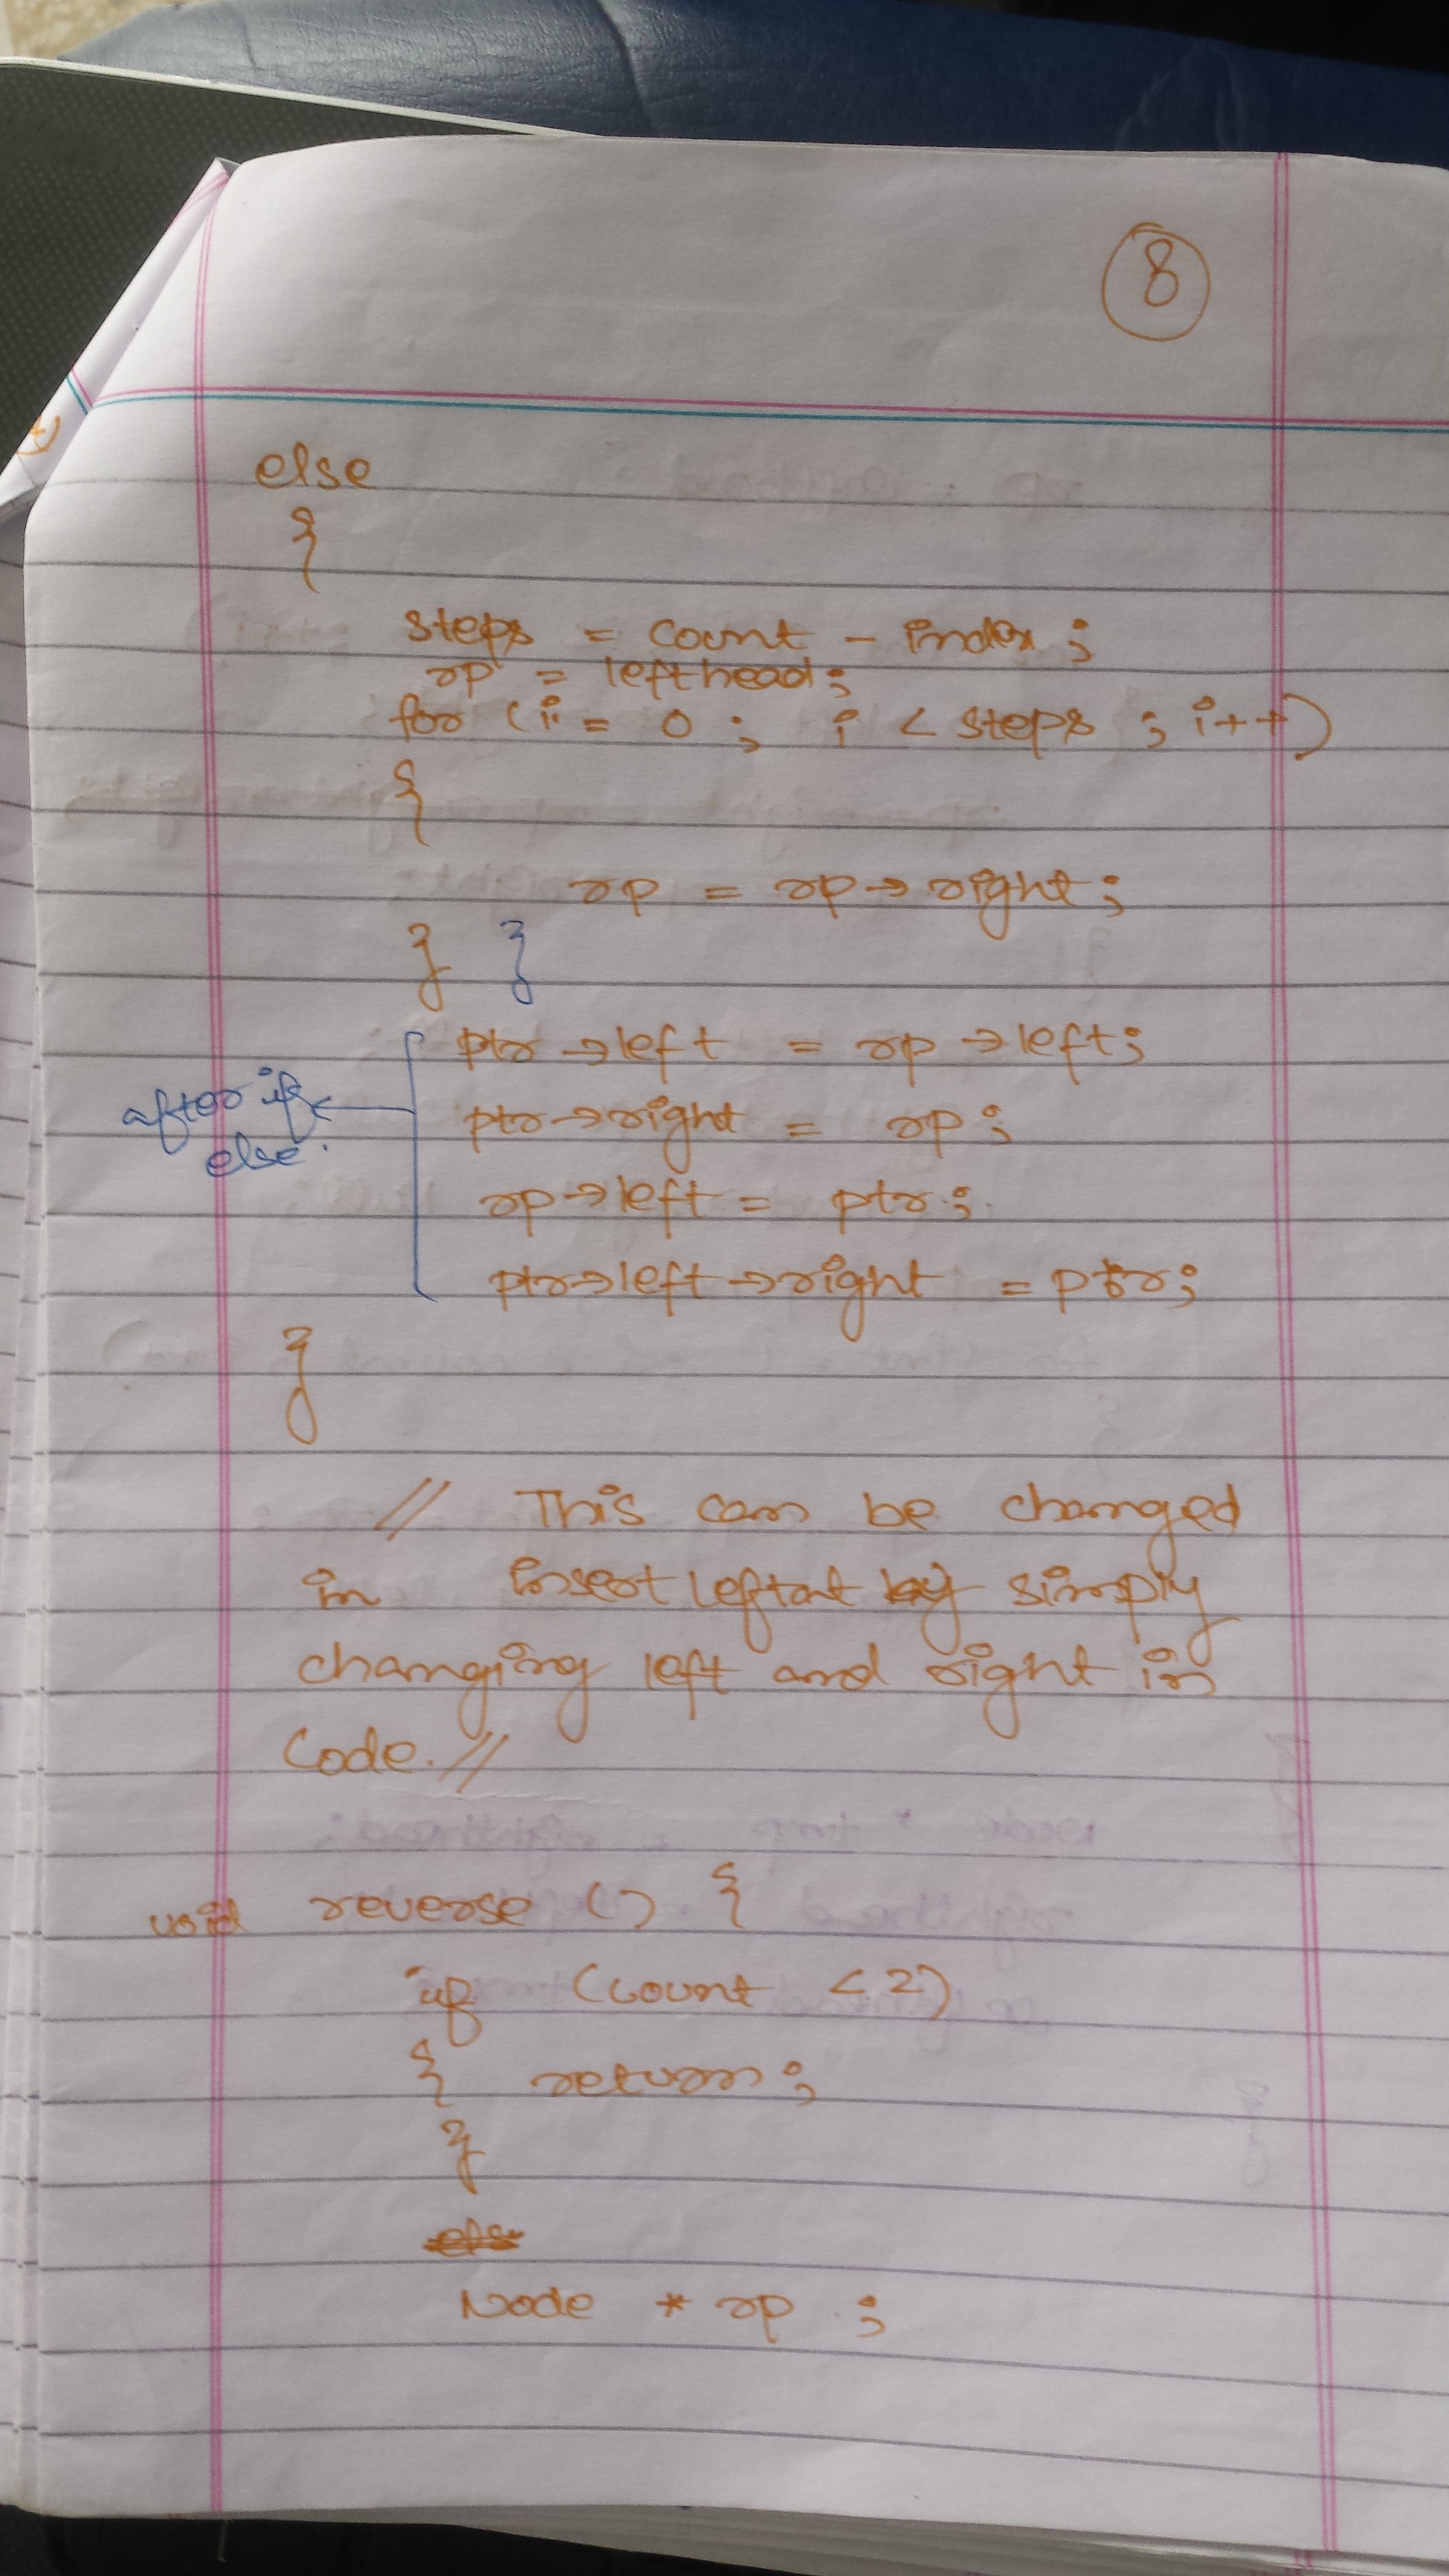 8
else
{
steps = count - index ;
rp = lefthead ;
for ( i = 0 ; i < steps ; i++ )
{
rp = rp → right ;
} }
ptr → left = rp → left ;
after if else.
ptr → right = rp ;
rp → left = ptr ;
ptr → left → right = ptr ;
}
// This can be changed
in insert leftat by simply
changing left and right in
code. //
void reverse () {
if (count < 2)
{ return ;
}
Node * rp ;